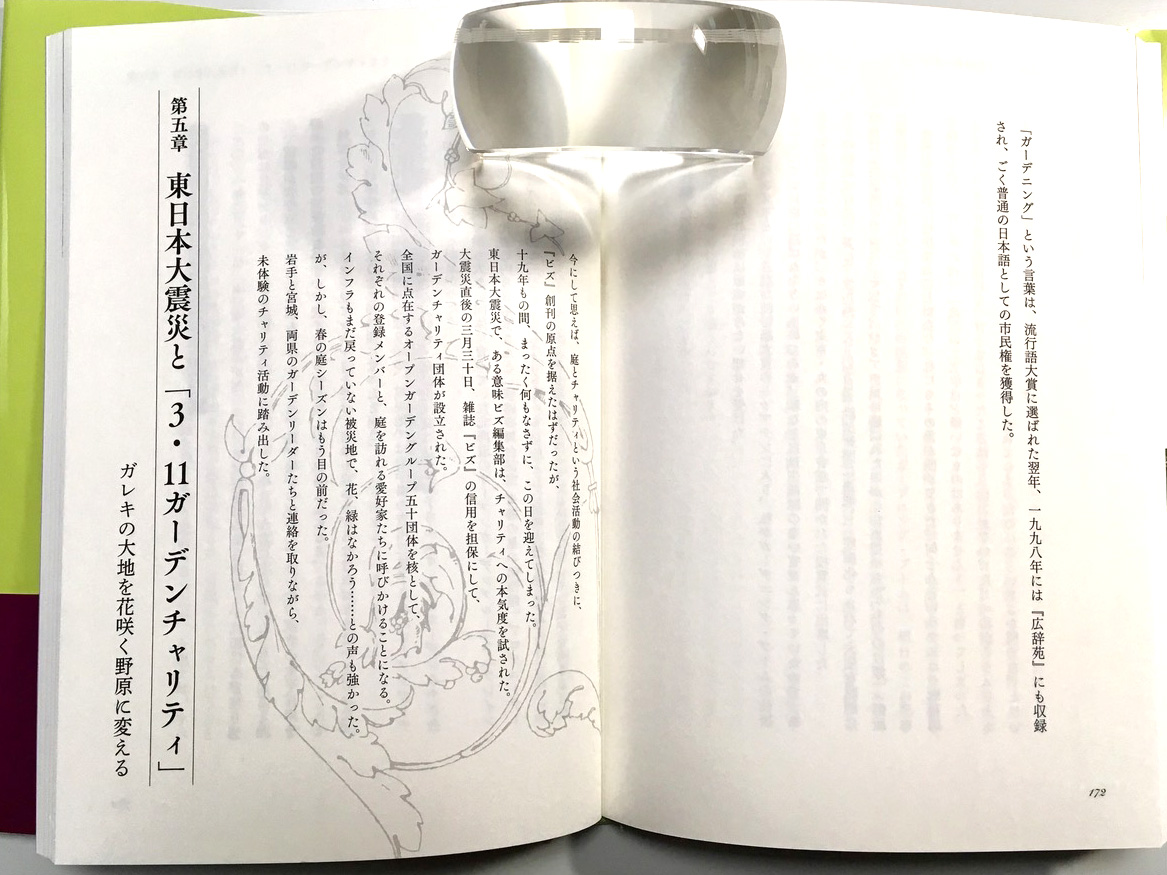 「ガーデニング」という言葉は、流行語大賞に選ばれた翌年、一九九八年には『広辞苑』にも収録
され、ごく普通の日本語としての市民権を獲得した。
172
今にして思えば、庭とチャリティという社会活動の結びつきに、
『ビズ』創刊の原点を据えたはずだったが、
十九年もの間、まったく何もなさずに、この日を迎えてしまった。
東日本大震災で、ある意味ビズ編集部は、チャリティへの本気度を試された。
大震災直後の三月三十日、雑誌『ビズ』の信用を担保にして、
ガーデンチャリティ団体が設立された。
全国に点在するオープンガーデングループ五十団体を核として、
それぞれの登録メンバーと、庭を訪れる愛好家たちに呼びかけることになる。
インフラもまだ戻っていない被災地で、花、緑はなかろう……との声も強かった。
が、しかし、春の庭シーズンはもう目の前だった。
岩手と宮城、両県のガーデンリーダーたちと連絡を取りながら、
未体験のチャリティ活動に踏み出した。
第五章 東日本大震災と「3・11ガーデンチャリティ」
ガレキの大地を花咲く野原に変える